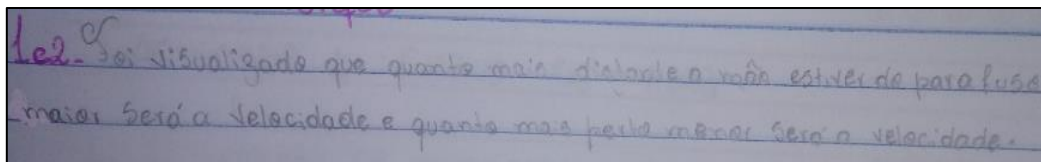 1e2- Foi visualizado que quanto mais distante a mão estiver do parafuso
maior será a velocidade e quanto mais perto menor será a velocidade.